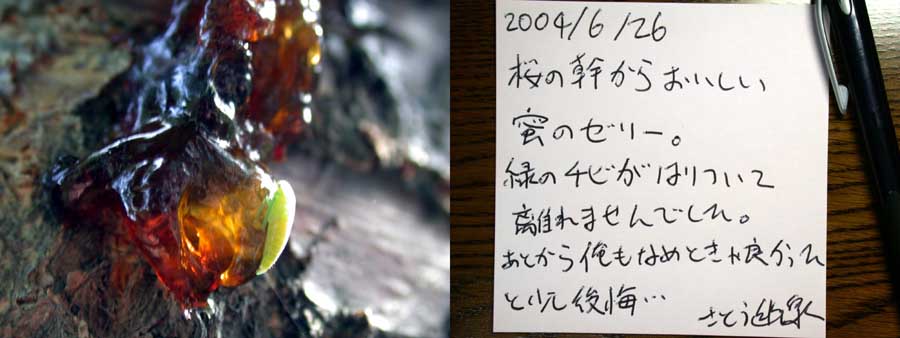 2004/6/26
桜の幹からおいしい
蜜のゼリー。
緑のチビがはりついて
離れませんでした。
あとから俺もなめときゃ良かった
と少し後悔…
さとう